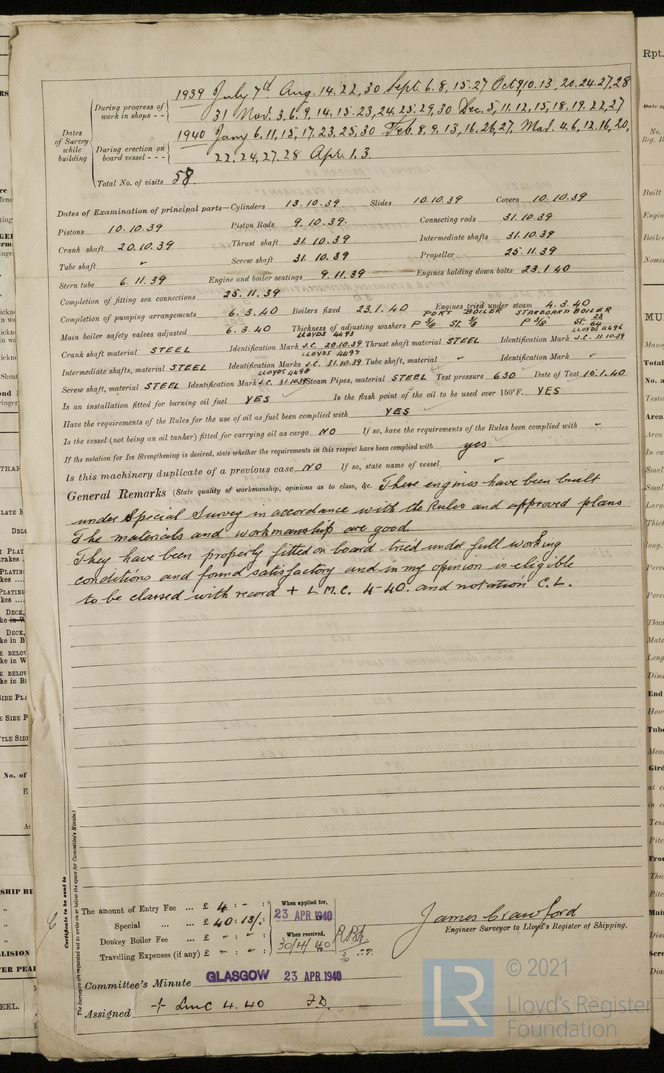 1939 July 7th Aug. 14. 22, 30 Sept. 6. 8, 15. 27 Oct 9. 10. 13, 20. 24. 27, 28
During progress of work in shops - -
31 Nov. 3. 6. 9, 14. 15. 23, 24, 25. 29, 30 Dec. 5, 11. 12, 15, 18. 19. 22, 27
Dates of Survey while building
1940 Jany 6. 11, 15, 17. 23, 25, 30 Feb. 8. 9. 13, 16. 26. 27, Mar. 4. 6. 12. 16, 20,
During erection on board vessel - - -
22. 24, 27. 28 Apr. 1. 3.
Total No. of visits 58.
Dates of Examination of principal parts—Cylinders 13. 10. 39 Slides 10. 10. 39 Covers 10. 10. 39
Pistons 10. 10. 39 Piston Rods 9. 10. 39. Connecting rods 31. 10. 39
Crank shaft 20. 10. 39 Thrust shaft 31. 10. 39 Intermediate shafts 31. 10. 39
Tube shaft Screw shaft 31. 10. 39 Propeller 25. 11. 39
Stern tube 6. 11. 39 Engine and boiler seatings 9. 11. 39 Engines holding down bolts 23. 1. 40
Completion of fitting sea connections 25. 11. 39
Completion of pumping arrangements 6. 3. 40 Boilers fixed 23. 1. 40 Engines tried under steam 4. 3. 40
PORT BOILER STARBOARD BOILER
Main boiler safety valves adjusted 6. 3. 40 Thickness of adjusting washers P St. P St.
LLOYDS 4493 LLOYDS 4496
Crank shaft material STEEL Identification Mark J.C. 20. 10. 39 Thrust shaft material STEEL Identification Mark J.C. 31. 10. 39
LLOYDS 4497
Intermediate shafts, material STEEL Identification Marks J.C. 31. 10. 39 Tube shaft, material Identification Mark
LLOYDS 4498
Screw shaft, material STEEL Identification Mark J.C. 31. 10. 39 Steam Pipes, material STEEL Test pressure 630 Date of Test 16. 1. 40
Is an installation fitted for burning oil fuel YES Is the flash point of the oil to be used over 150°F. YES
Have the requirements of the Rules for the use of oil as fuel been complied with YES
Is the vessel (not being an oil tanker) fitted for carrying oil as cargo NO If so, have the requirements of the Rules been complied with
If the notation for Ice Strengthening is desired, state whether the requirements in this respect have been complied with yes
Is this machinery duplicate of a previous case NO If so, state name of vessel
General Remarks (State quality of workmanship, opinions as to class, &c. These engines have been built
under Special Survey in accordance with the Rules and approved plans
The materials and workmanship are good
They have been properly fitted on board tried under full working
conditions and found satisfactory and in my opinion is eligible
to be classed with record + L.M.C. 4-40. and notation C.L.
Certificate to be sent to
The Surveyors are requested not to write on or below the space for Committee's Minute.
The amount of Entry Fee ... £ 4 : - : When applied for,
Special ... ... £ 40 : 13/- : 23 APR 1940
Donkey Boiler Fee ... £ - : - : When received,
Travelling Expenses (if any) £ - : - : 30/4/40
James Crawford
Engineer Surveyor to Lloyd's Register of Shipping.
Committee's Minute GLASGOW 23 APR 1940
Assigned + LMC 4. 40 F.D.
LR
© 2021
Lloyd's Register
Foundation